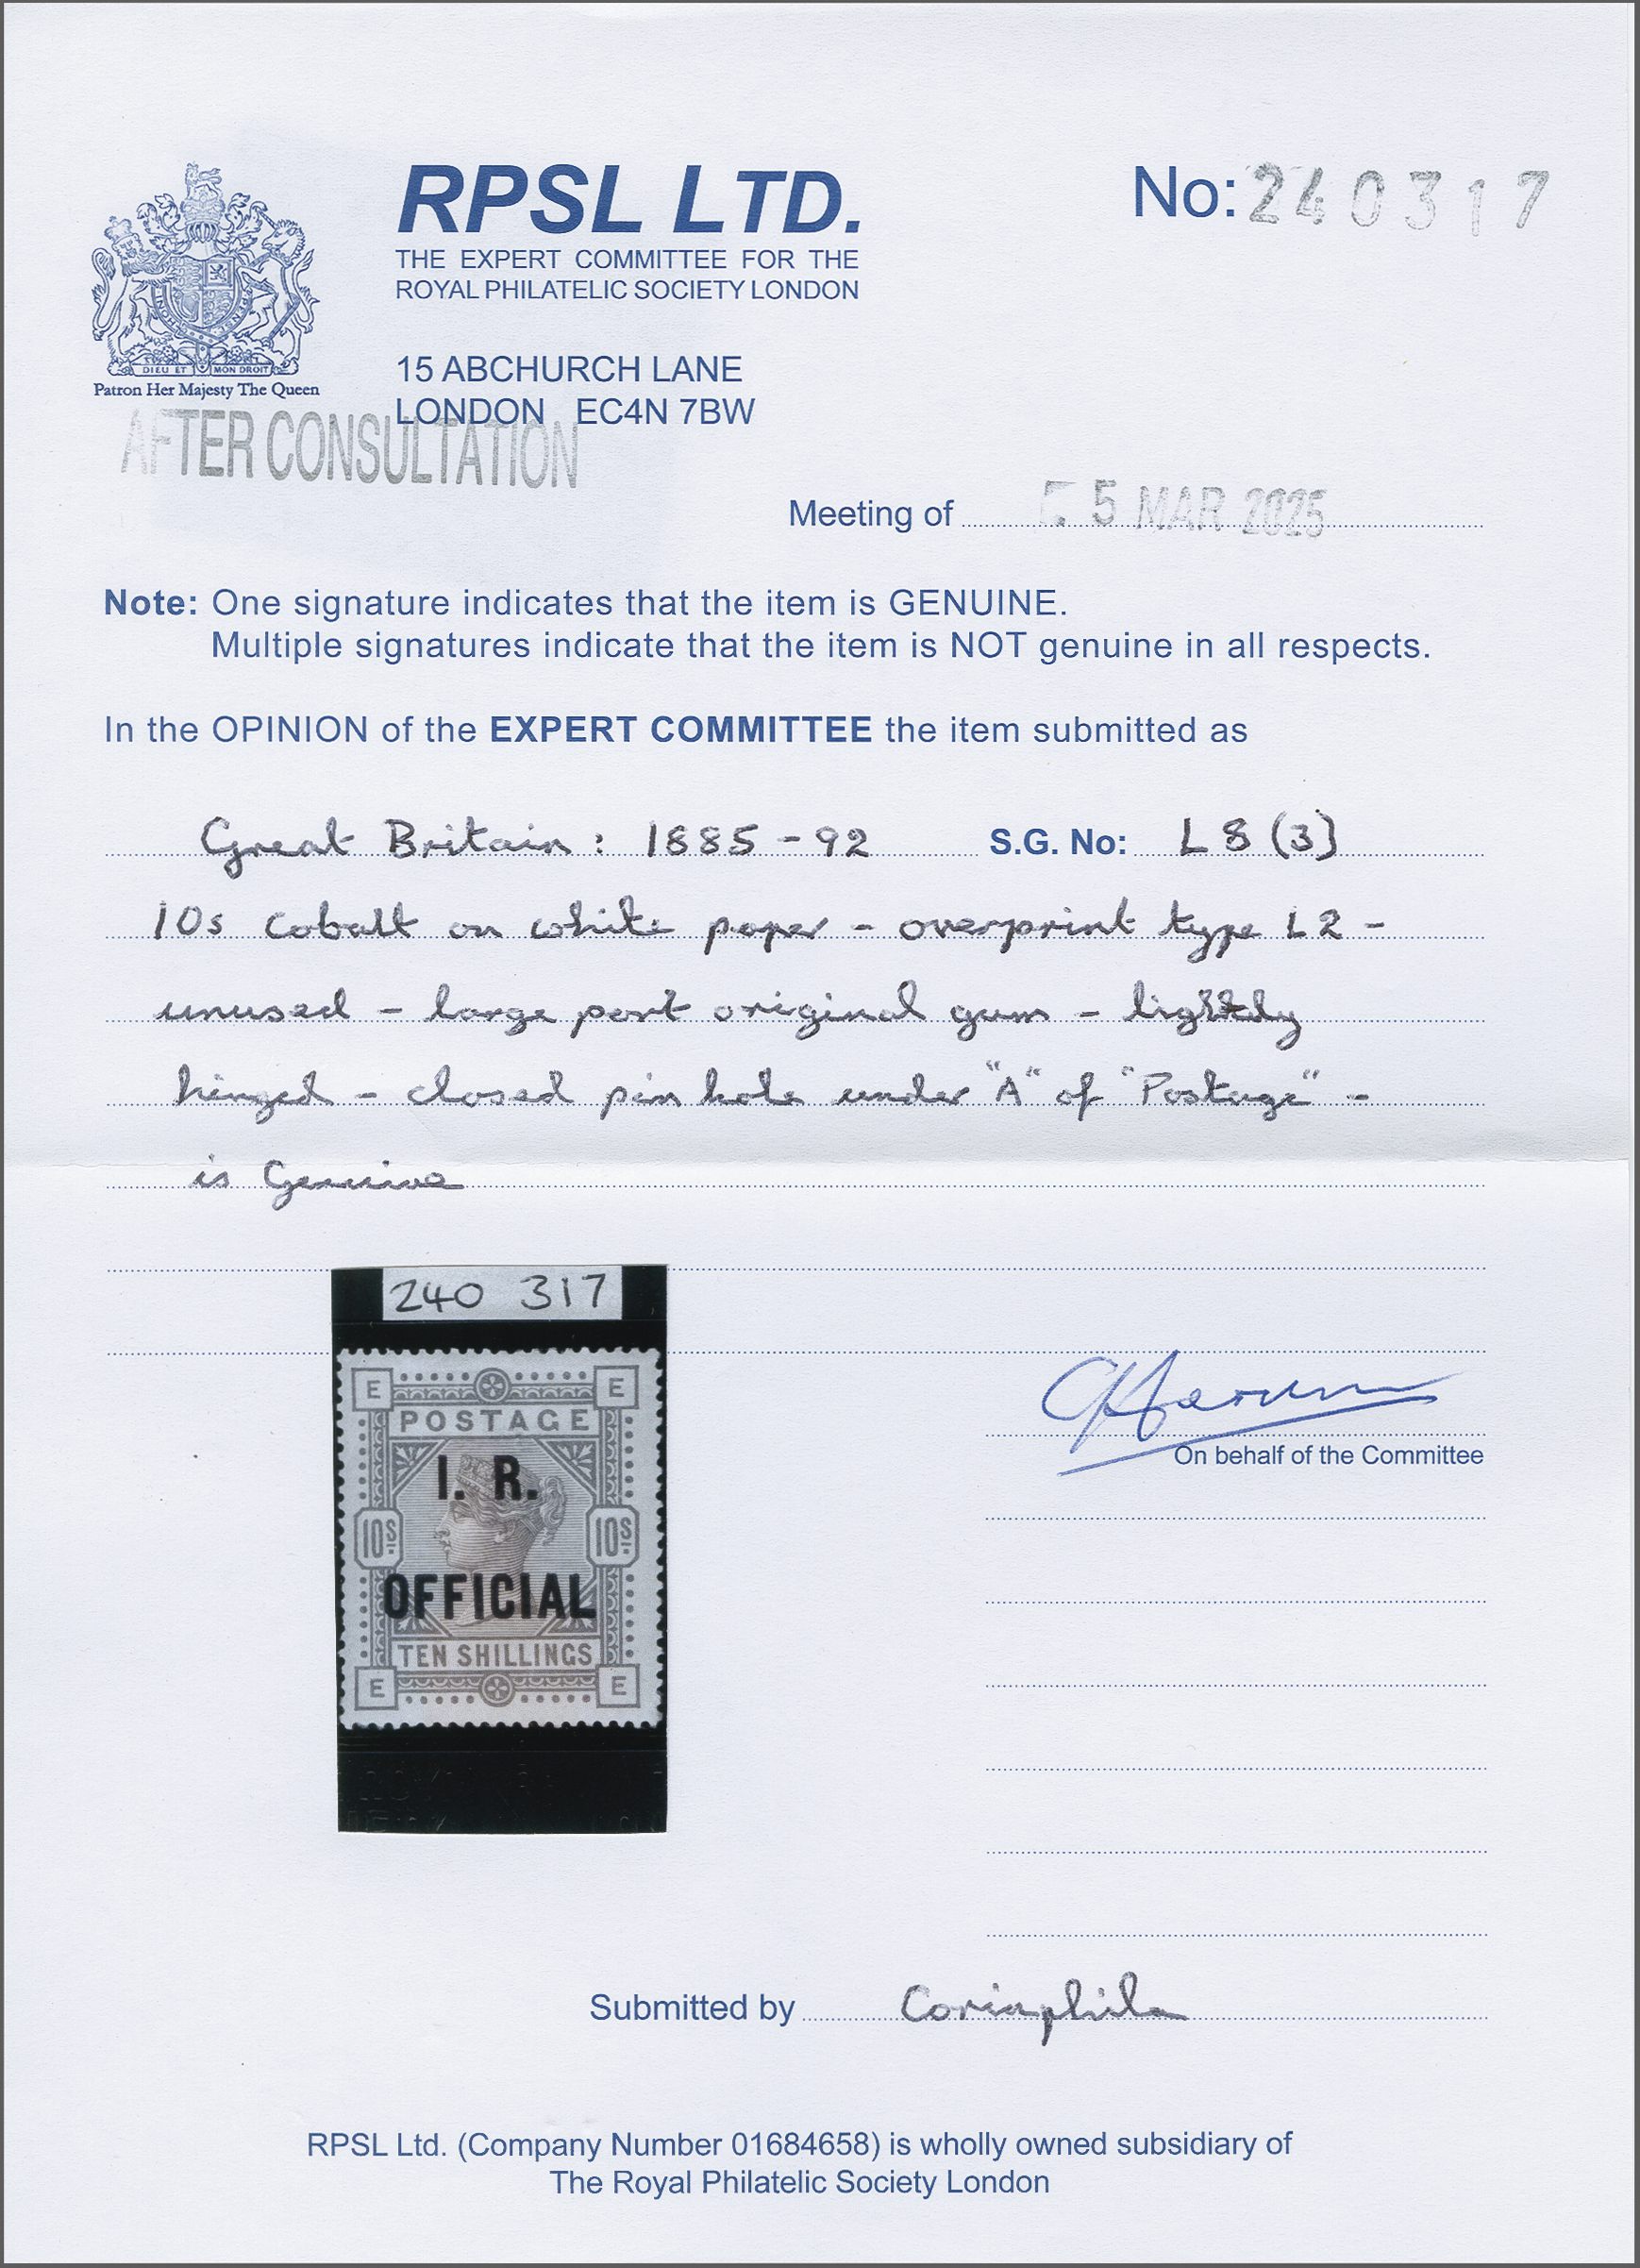 RPSL LTD.
THE EXPERT COMMITTEE FOR THE
ROYAL PHILATELIC SOCIETY LONDON
No: 240317
15 ABCHURCH LANE
LONDON EC4N 7BW
DIEU ET MON DROIT
Patron Her Majesty The Queen
AFTER CONSULTATION
Meeting of 5 MAR 2025
Note: One signature indicates that the item is GENUINE.
Multiple signatures indicate that the item is NOT genuine in all respects.
In the OPINION of the EXPERT COMMITTEE the item submitted as
Great Britain: 1885-92 S.G. No: L8(3)
10s cobalt on white paper - overprint type L2 -
unused - large part original gum - lightly
hinged - closed pin hole under "A" of "Postage" -
is Genuine
240 317
E E
POSTAGE
I. R.
10S 10S
OFFICIAL
TEN SHILLINGS
E E
On behalf of the Committee
Submitted by Corinphila
RPSL Ltd. (Company Number 01684658) is wholly owned subsidiary of
The Royal Philatelic Society London